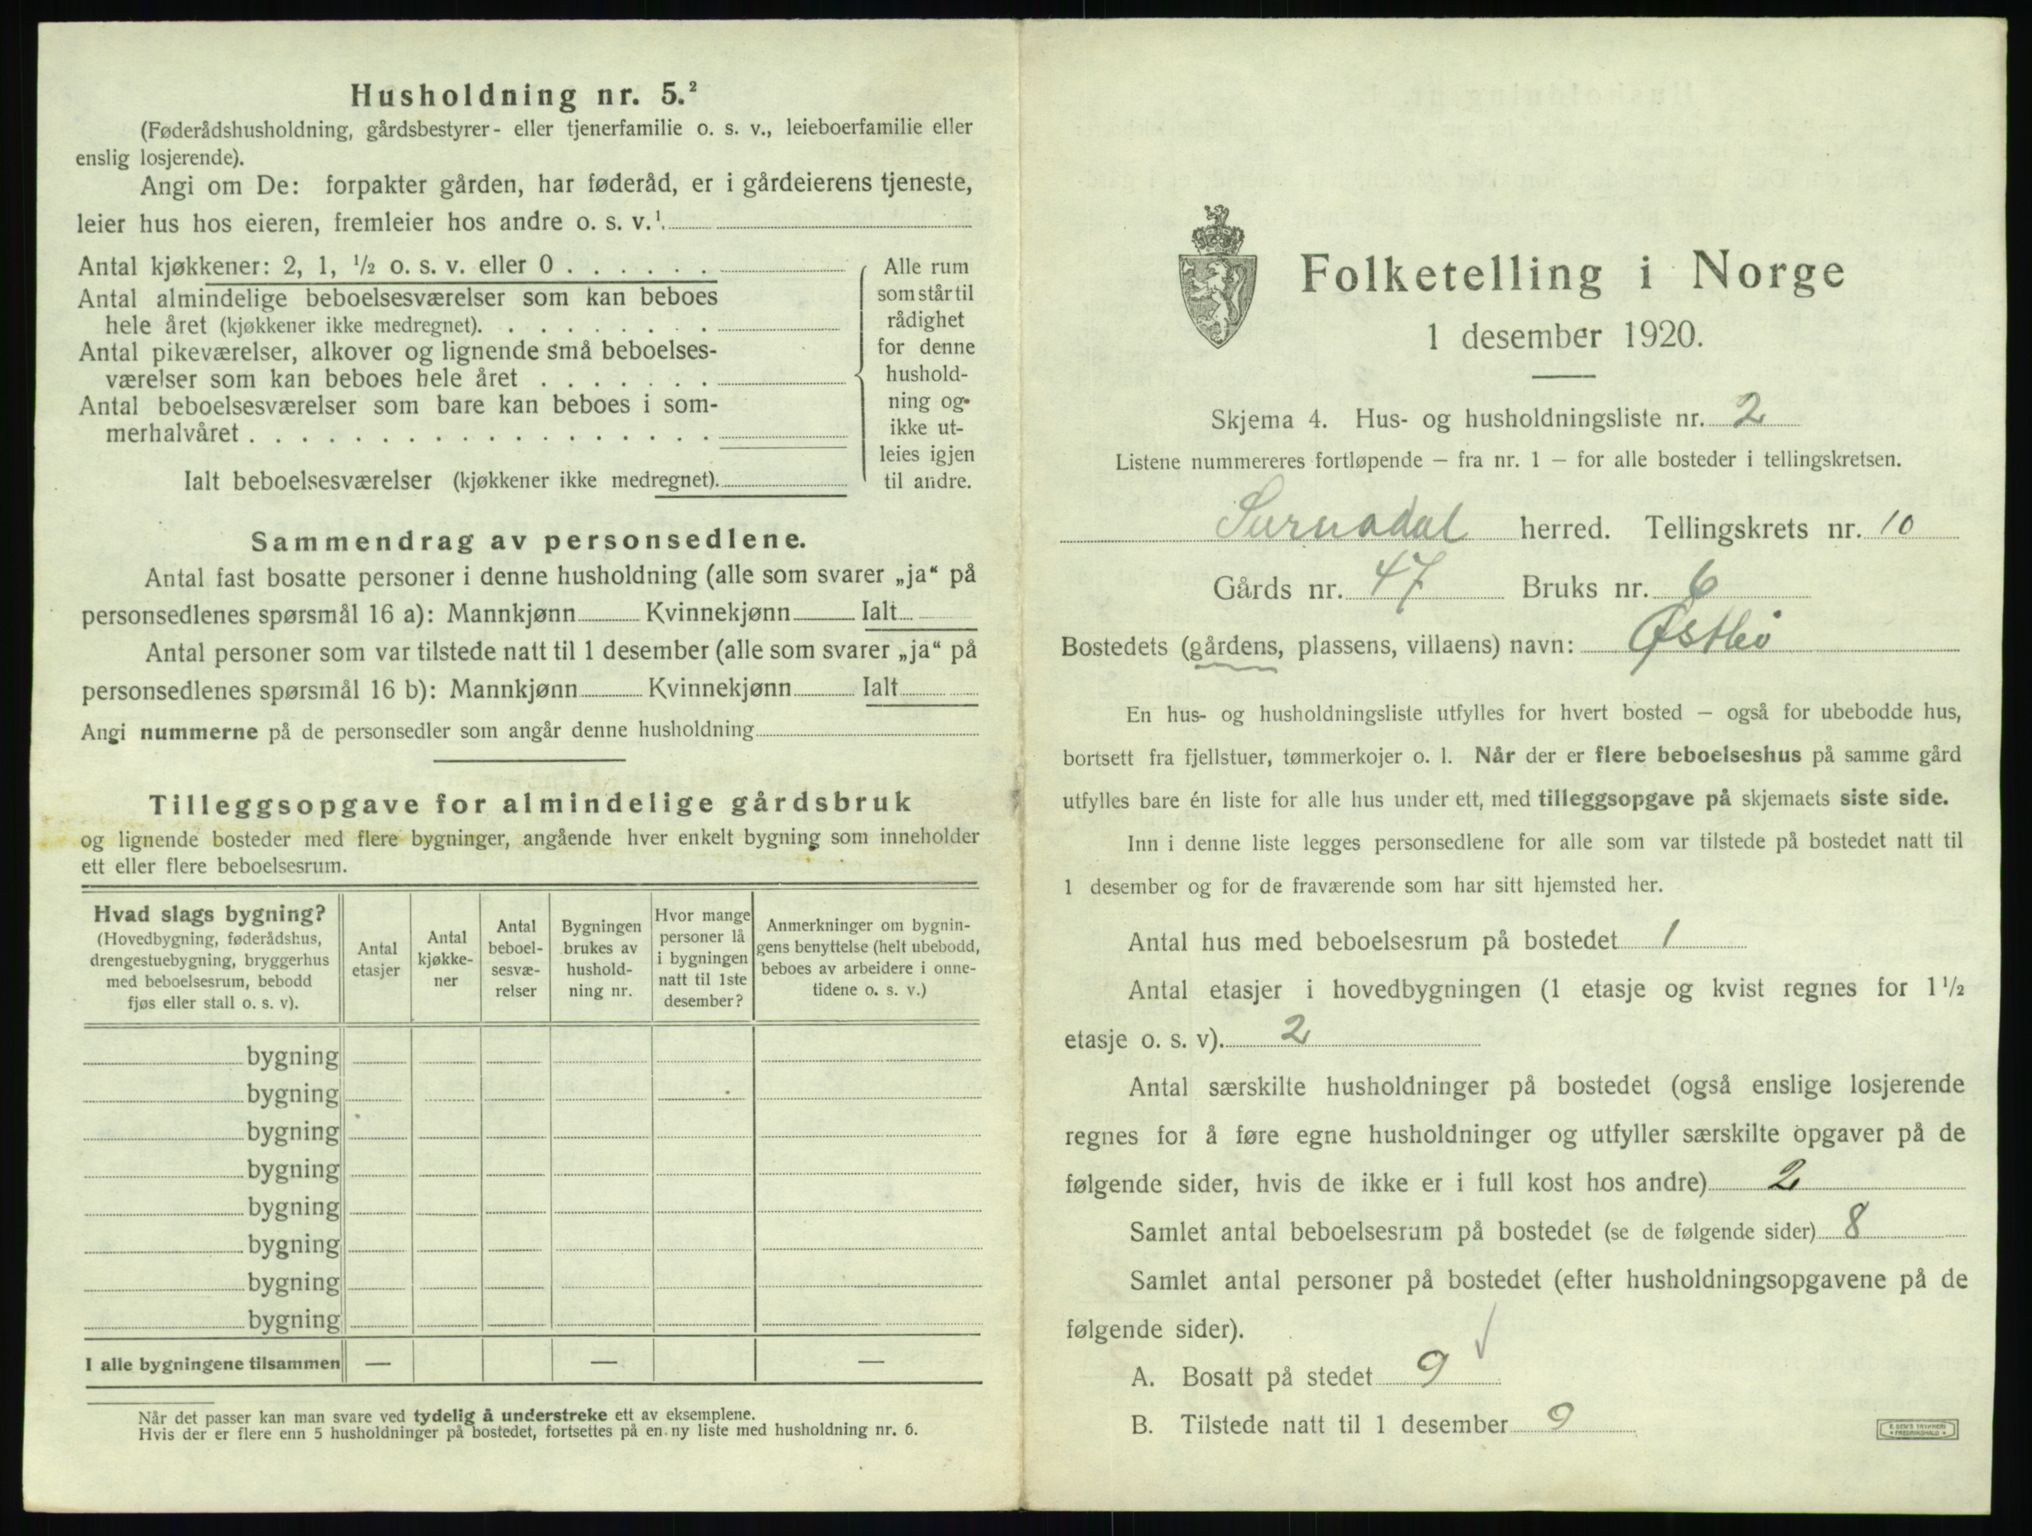 Husholdning nr. 5.²
(Føderådshusholdning, gårdsbestyrer- eller tjenerfamilie o. s. v., leieboerfamilie eller
enslig losjerende).
Angi om De: forpakter gården, har føderåd, er i gårdeierens tjeneste,
leier hus hos eieren, fremleier hos andre o. s. v.¹
Antal kjøkkener: 2, 1, ½ o. s. v. eller 0
Antal almindelige beboelsesværelser som kan beboes
hele året (kjøkkener ikke medregnet).
Antal pikeværelser, alkover og lignende små beboelses-
værelser som kan beboes hele året
Antal beboelsesværelser som bare kan beboes i som-
merhalvåret
Ialt beboelsesværelser (kjøkkener ikke medregnet).
Alle rum
som står til
rådighet
for denne
hushold-
ning og
ikke ut-
leies igjen
til andre.
Sammendrag av personsedlene.
Antal fast bosatte personer i denne husholdning (alle som svarer „ja“ på
personsedlenes spørsmål 16 a): Mannkjønn Kvinnekjønn Ialt
Antal personer som var tilstede natt til 1 desember (alle som svarer „ja“ på
personsedlenes spørsmål 16 b): Mannkjønn Kvinnekjønn Ialt
Angi nummerne på de personsedler som angår denne husholdning
Tilleggsopgave for almindelige gårdsbruk
og lignende bosteder med flere bygninger, angående hver enkelt bygning som inneholder
ett eller flere beboelsesrum.
Hvad slags bygning?
(Hovedbygning, føderådshus,
drengestuebygning, bryggerhus
med beboelsesrum, bebodd
fjøs eller stall o. s. v).
Antal
etasjer
Antal
kjøkke-
ner
Antal
beboel-
sesvæ-
relser
Bygningen
brukes av
hushold-
ning nr.
Hvor mange
personer lå
i bygningen
natt til 1ste
desember?
Anmerkninger om bygnin-
gens benyttelse (helt ubebodd,
beboes av arbeidere i onne-
tidene o. s. v.)
bygning
bygning
bygning
bygning
bygning
bygning
bygning
bygning
I alle bygningene tilsammen — — —
Når det passer kan man svare ved tydelig å understreke ett av eksemplene.
Hvis der er flere enn 5 husholdninger på bostedet, fortsettes på en ny liste med husholdning nr. 6.
Folketelling i Norge
1 desember 1920.
Skjema 4. Hus- og husholdningsliste nr. 2
Listene nummereres fortløpende — fra nr. 1 — for alle bosteder i tellingskretsen.
Surnadal herred. Tellingskrets nr. 10
Gårds nr. 47 Bruks nr. 6
Bostedets (gårdens, plassens, villaens) navn: Østbø
En hus- og husholdningsliste utfylles for hvert bosted — også for ubebodde hus,
bortsett fra fjellstuer, tømmerkojer o. l. Når der er flere beboelseshus på samme gård
utfylles bare én liste for alle hus under ett, med tilleggsopgave på skjemaets siste side.
Inn i denne liste legges personsedlene for alle som var tilstede på bostedet natt til
1 desember og for de fraværende som har sitt hjemsted her.
Antal hus med beboelsesrum på bostedet 1
Antal etasjer i hovedbygningen (1 etasje og kvist regnes for 1½
etasje o. s. v). 2
Antal særskilte husholdninger på bostedet (også enslige losjerende
regnes for å føre egne husholdninger og utfyller særskilte opgaver på de
følgende sider, hvis de ikke er i full kost hos andre) 2
Samlet antal beboelsesrum på bostedet (se de følgende sider) 8
Samlet antal personer på bostedet (efter husholdningsopgavene på de
følgende sider).
A. Bosatt på stedet 9
B. Tilstede natt til 1 desember 9